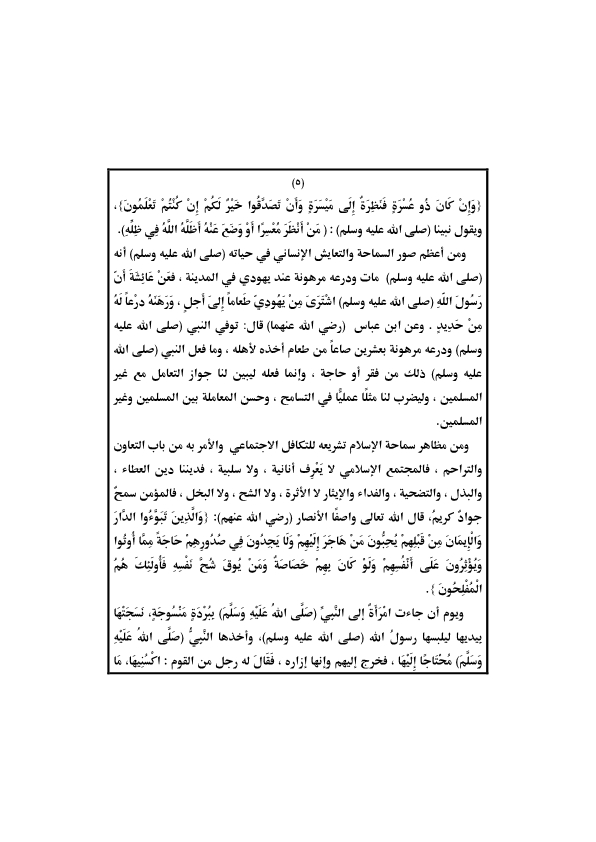 (٥)
{وَإِنْ كَانَ ذُو عُسْرَةٍ فَنَظِرَةٌ إِلَى مَيْسَرَةٍ وَأَنْ تَصَدَّقُوا خَيْرٌ لَكُمْ إِنْ كُنْتُمْ تَعْلَمُونَ}،
ويقول نبينا (صلى الله عليه وسلم) : ( مَنْ أَنْظَرَ مُعْسِرًا أَوْ وَضَعَ عَنْهُ أَظَلَّهُ اللَّهُ فِي ظِلِّهِ).
ومن أعظم صور السماحة والتعايش الإنساني في حياته (صلى الله عليه وسلم) أنه
(صلى الله عليه وسلم) مات ودرعه مرهونة عند يهودي في المدينة ، فعَنْ عَائِشَةَ أَنّ
رَسُولَ اللّهِ (صلى الله عليه وسلم) اشْتَرَىَ مِنْ يَهُودِيّ طَعاماً إِلىَ أَجلٍ ، وَرَهَنَهُ دِرْعاً لَهُ
مِنْ حَدِيدٍ . وعن ابن عباس (رضي الله عنهما) قال: توفي النبي (صلى الله عليه
وسلم) ودرعه مرهونة بعشرين صاعاً من طعام أخذه لأهله ، وما فعل النبي (صلى الله
عليه وسلم) ذلك من فقر أو حاجة ، وإنما فعله ليبين لنا جواز التعامل مع غير
المسلمين ، وليضرب لنا مثلًا عمليًّا في التسامح ، وحسن المعاملة بين المسلمين وغير
المسلمين.
ومن مظاهر سماحة الإسلام تشريعه للتكافل الاجتماعي والأمر به من باب التعاون
والتراحم ، فالمجتمع الإسلامي لا يَعْرِف أنانية ، ولا سلبية ، فديننا دين العطاء ،
والبذل ، والتضحية ، والفداء والإيثار لا الأثرة ، ولا الشح ، ولا البخل ، فالمؤمن سمحٌ
جوادٌ كريمٌ، قال الله تعالى واصفًا الأنصار (رضي الله عنهم): {وَالَّذِينَ تَبَوَّءُوا الدَّارَ
وَالْإِيمَانَ مِنْ قَبْلِهِمْ يُحِبُّونَ مَنْ هَاجَرَ إِلَيْهِمْ وَلَا يَجِدُونَ فِي صُدُورِهِمْ حَاجَةً مِمَّا أُوتُوا
وَيُؤْثِرُونَ عَلَى أَنْفُسِهِمْ وَلَوْ كَانَ بِهِمْ خَصَاصَةٌ وَمَنْ يُوقَ شُحَّ نَفْسِهِ فَأُولَئِكَ هُمُ
الْمُفْلِحُونَ }.
ويوم أن جاءت امْرَأَةٌ إلى النَّبِيِّ (صَلَّى اللهُ عَلَيْهِ وَسَلَّمَ) بِبُرْدَةٍ مَنْسُوجَةٍ، نَسَجَتْهَا
بيديها ليلبسها رسولُ الله (صلى الله عليه وسلم)، وأخذها النَّبِيُّ (صَلَّى اللهُ عَلَيْهِ
وَسَلَّمَ) مُحْتَاجًا إِلَيْهَا ، فخرج إليهم وإنها إزاره ، فَقَالَ له رجل من القوم : اكْسُنِيهَا، مَا